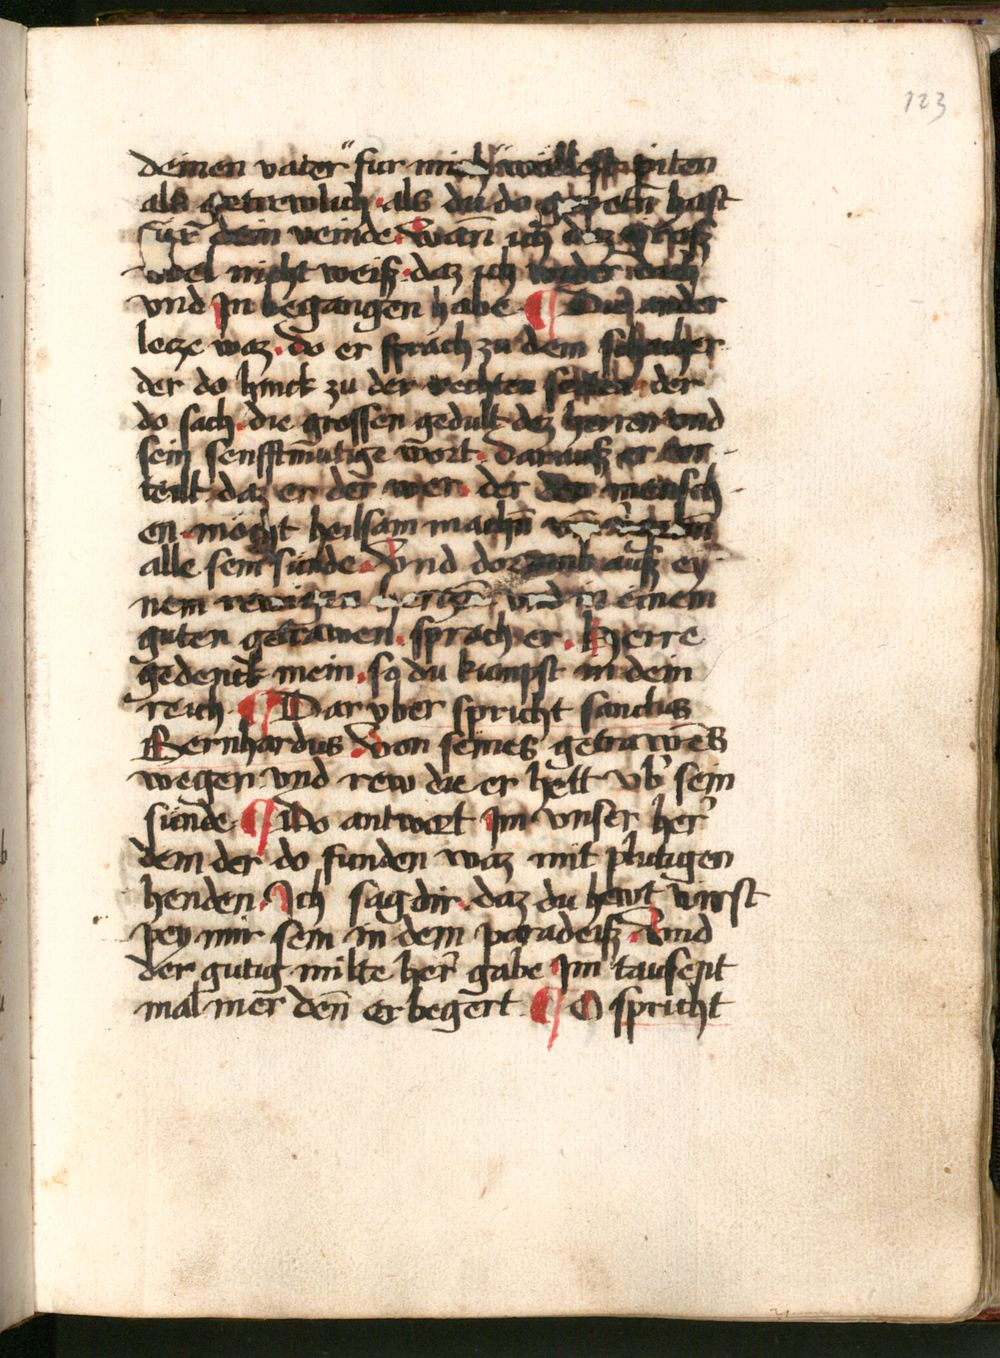 123
deinen vater fur mich wöllest piten
als getrewlich als du do gepetn̄ hast
für dein veinde. Wan̄ ich daz
vbel nicht weiß. daz ich wider dich
vnd In begangen habe ¶ Die ander
lecze waz. do er sprach zu dem schacher
der do hinck zu der rechten seitten. der
do sach. die grossen gedult dez herren vnd
sein senfftmutige wort. Darauß er vr
teilt daz er der wer. der den mensch
en möcht heilsam machn̄
alle sein sünde. Vnd dorumb auß ey
nem rewigen herczen vnd in einem
guten getrawen. sprach er. Herre
gedenck mein. so du kumpst in dein
reich. ¶ Dar vber spricht sanctus
Bernhardus. Von seines getrawēs
wegen vnd rew die er hett vb̄ sein
sünde. ¶ Do antwort Im vnser her̄
dem der do funden waz mit plutigen
henden. Ich sag dir. daz du hewt wirst
pey mir sein in dem paradeiß. Vnd
der gutig milte her̄ gabe Im tausent
mal mer den̄ er begert. ¶ O spricht